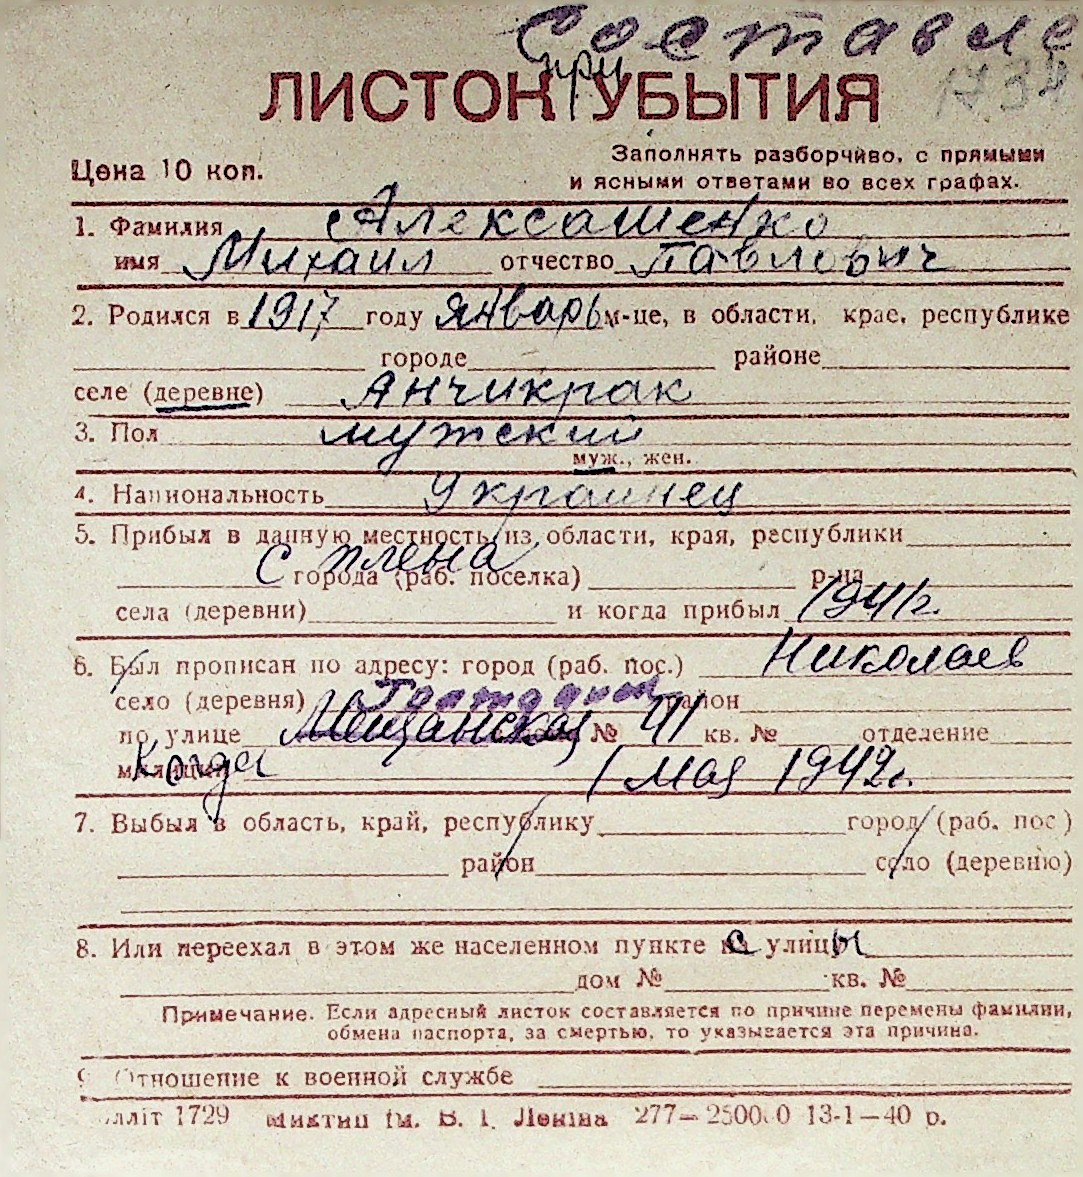 Составле
1734
при
ЛИСТОК УБЫТИЯ
Цена 10 коп.
Заполнять разборчиво, с прямыми
и ясными ответами во всех графах.
1. Фамилия Алексашенко
имя Михаил отчество Павлович
2. Родился в 1917 году январь м-це, в области, крае, республике
городе районе
селе (деревне) Анчикрак
3. Пол мужский
муж., жен.
4. Национальность Украинец
5. Прибыл в данную местность из области, края, республики
С плена
города (раб. поселка) р-на
села (деревни) и когда прибыл 1941г.
6. Был прописан по адресу: город (раб. пос.) Николаев
село (деревня) район
по улице Мещанская № 41 кв. № отделение
милиции Когда 1 мая 1942г.
7. Выбыл в область, край, республику город (раб. пос)
район село (деревню)
8. Или переехал в этом же населенном пункте с улицы
дом № кв. №
Примечание. Если адресный листок составляется по причине перемены фамилии,
обмена паспорта, за смертью, то указывается эта причина.
9 Отношение к военной службе
лліт 1729 ім. В. І. Леніна 277— 13-1—40 р.